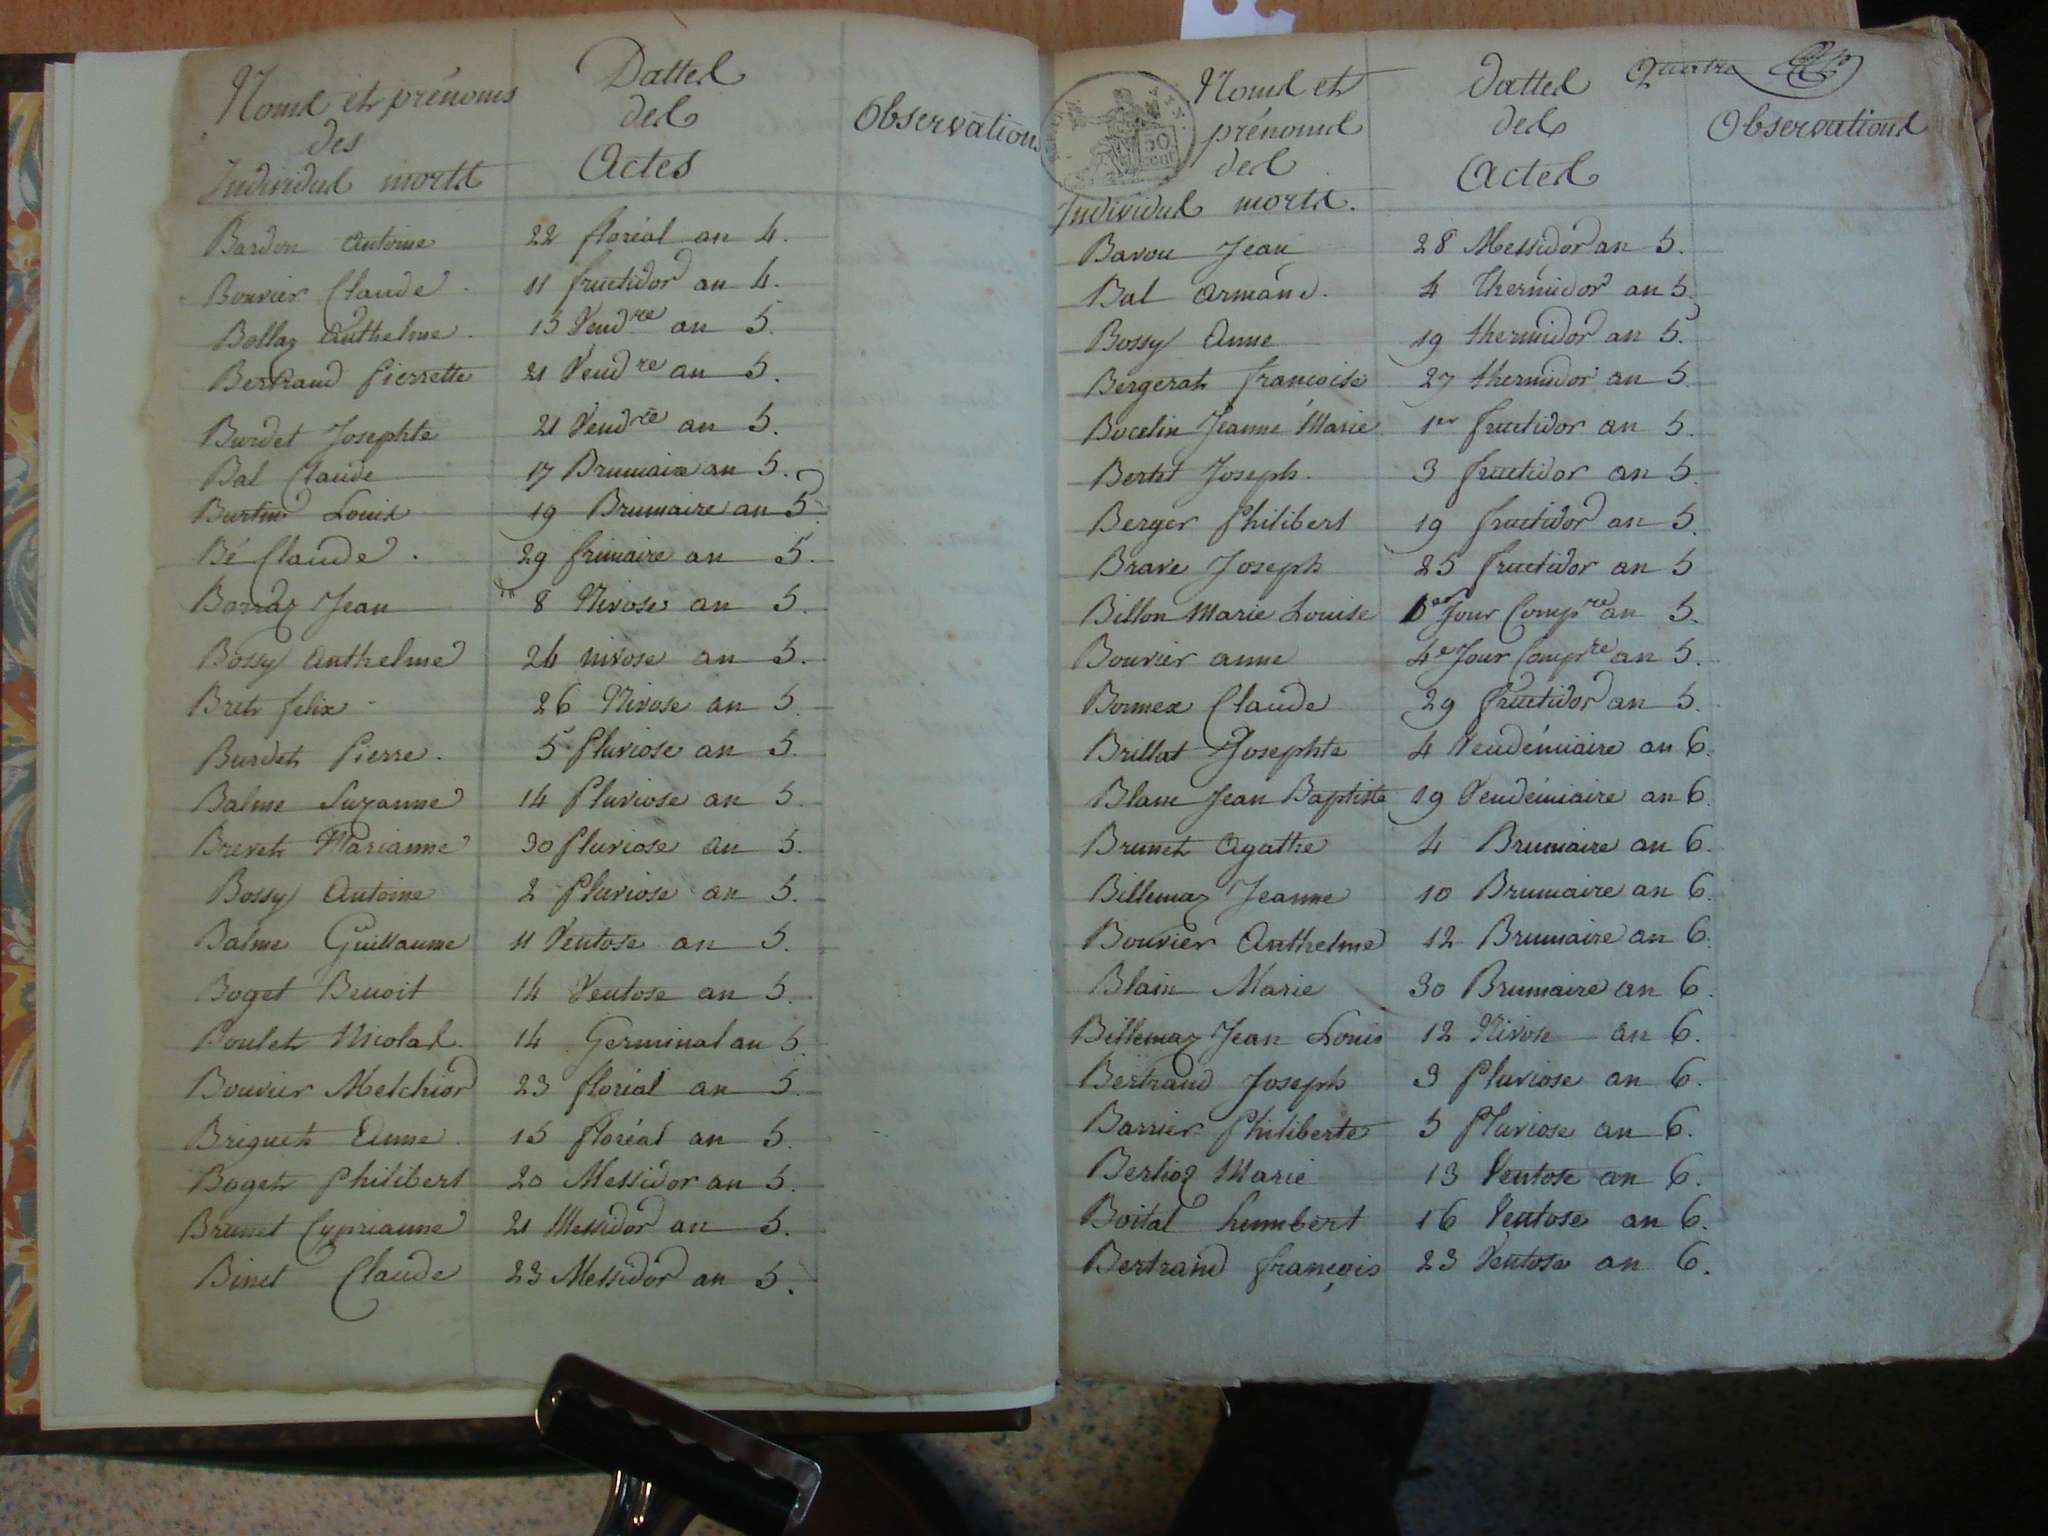 Noms et prénoms
des
Individus morts
Dattes
des
Actes
Observations
Bardon Antoine 22 floréal an 4.
Bouvier Claude. 11 fructidor an 4.
Bollaz Anthelme. 15 Vendre an 5.
Bertrand Pierrette 21 Vendre an 5.
Burdet Josephte 21 Vendre an 5.
Bal Claude 17 Brumaire an 5.
Burtin Louis 19 Brumaire an 5.
Bé Claude. 29 frimaire an 5.
Borraz Jean 8 Nivose an 5.
Bossy Anthelme 26 nivose an 5.
Bret felix 26 Nivose an 5.
Burdet Pierre. 5 Pluviose an 5.
Balme Suzanne 14 Pluviose an 5.
Brevet Marianne 30 pluviose an 5.
Bossy Antoine 2 Pluviose an 5.
Balme Guillaume 11 Ventose an 5.
Boget Benoit 14 Ventose an 5.
Boulet Nicolas. 14 Germinal an 5.
Bouvier Melchior 23 floréal an 5.
Briguet Anne. 15 floréal an 5.
Boget Philibert 20 Messidor an 5.
Brunet Cyprianne 21 Messidor an 5.
Binet Claude 23 Messidor an 5.
Quatre
Noms et
prénoms
des
Individus morts.
dattes
des
Actes
Observations
50
cent
Bavou Jean 28 Messidor an 5.
Bal Armand. 4 thermidor an 5.
Bossy Anne 19 thermidor an 5.
Bergerat francoise 27 thermidor an 5.
Bocelin Jeanne Marie 1er fructidor an 5.
Bertet Joseph. 3 fructidor an 5.
Berger Philibert 19 fructidor an 5.
Brave Joseph 25 fructidor an 5
Billon Marie Louise Jour Compre an 5.
Bouvier anne 4e Jour Compre an 5.
Claude 29 fructidor an 5.
Brillat Josephte 4 Vendémiaire an 6.
Blanc Jean Baptiste 19 Vendémiaire an 6.
Brunet Agathe 4 Brumaire an 6.
Billemaz Jeanne 10 Brumaire an 6.
Bouvier Anthelme 12 Brumaire an 6.
Blain Marie 30 Brumaire an 6.
Billemaz Jean Louis 12 Nivose an 6.
Bertrand Joseph 3 Pluviose an 6.
Barrier Philiberte 5 Pluviose an 6.
Berlioz Marie 13 Ventose an 6.
Boital humbert 16 Ventose an 6.
Bertrand françois 23 Ventose an 6.